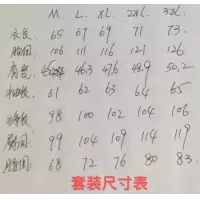 M. L. XL. 2XL. 3XL.
衣长 65 67 69 71 73.
胸围 106 111 116 121 126
肩宽 46.3 47.6 48.9 50.2
袖长 61 62 63 64 65
裤长 98 100 102 104 106
臀围 99 104 109 114 119
腰围 68 72 76 80 83.
套装尺寸表